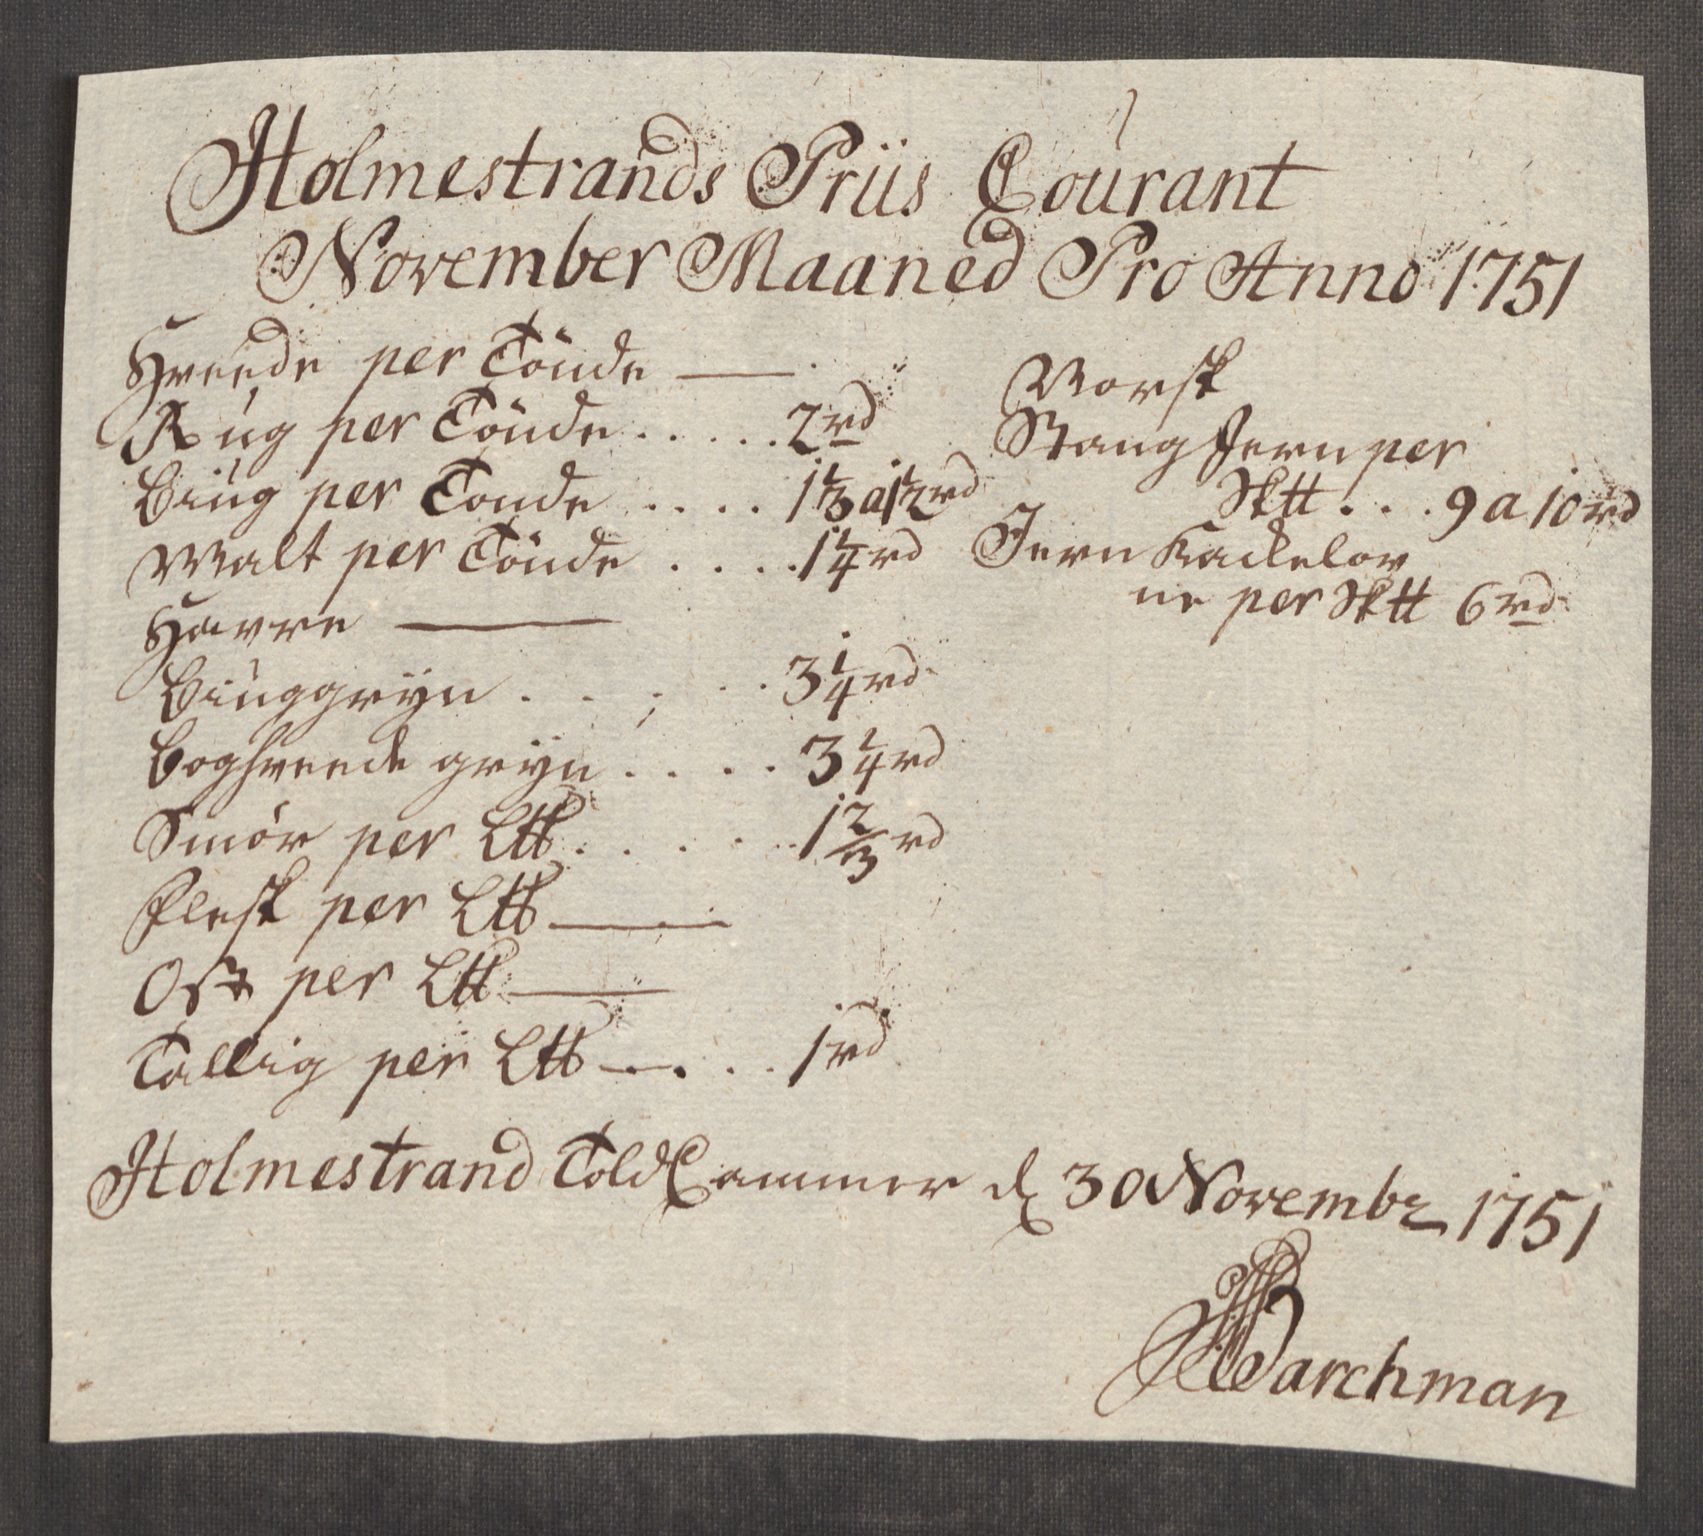 Holmestrands Priis Courant
November Maaned Pro Anno 1751
Hveede per Tönde
Rug per Tönde . . . . . 2 rd
Biug per Tonde . . . . 1 1/3 a 1 1/2 rd
Malt per Tönde . . . . 1 1/4 rd
Havre
Biuggryn . . . . . 3 1/4 rd
Boghveede gryn . . . . 3 1/4 rd
Smör per L℔ . . . . . 1 2/3 rd
Flesk per L℔
Ost per L℔
Tallig per L℔ . . . 1 rd
Norsk
Stang Jern per
Sk℔ . . . 9 a 10 rd
Jern Kackelov
ne per Sk℔ 6 rd
Holmestrand Told Cammer d 30 Novembr 1751
Barchman